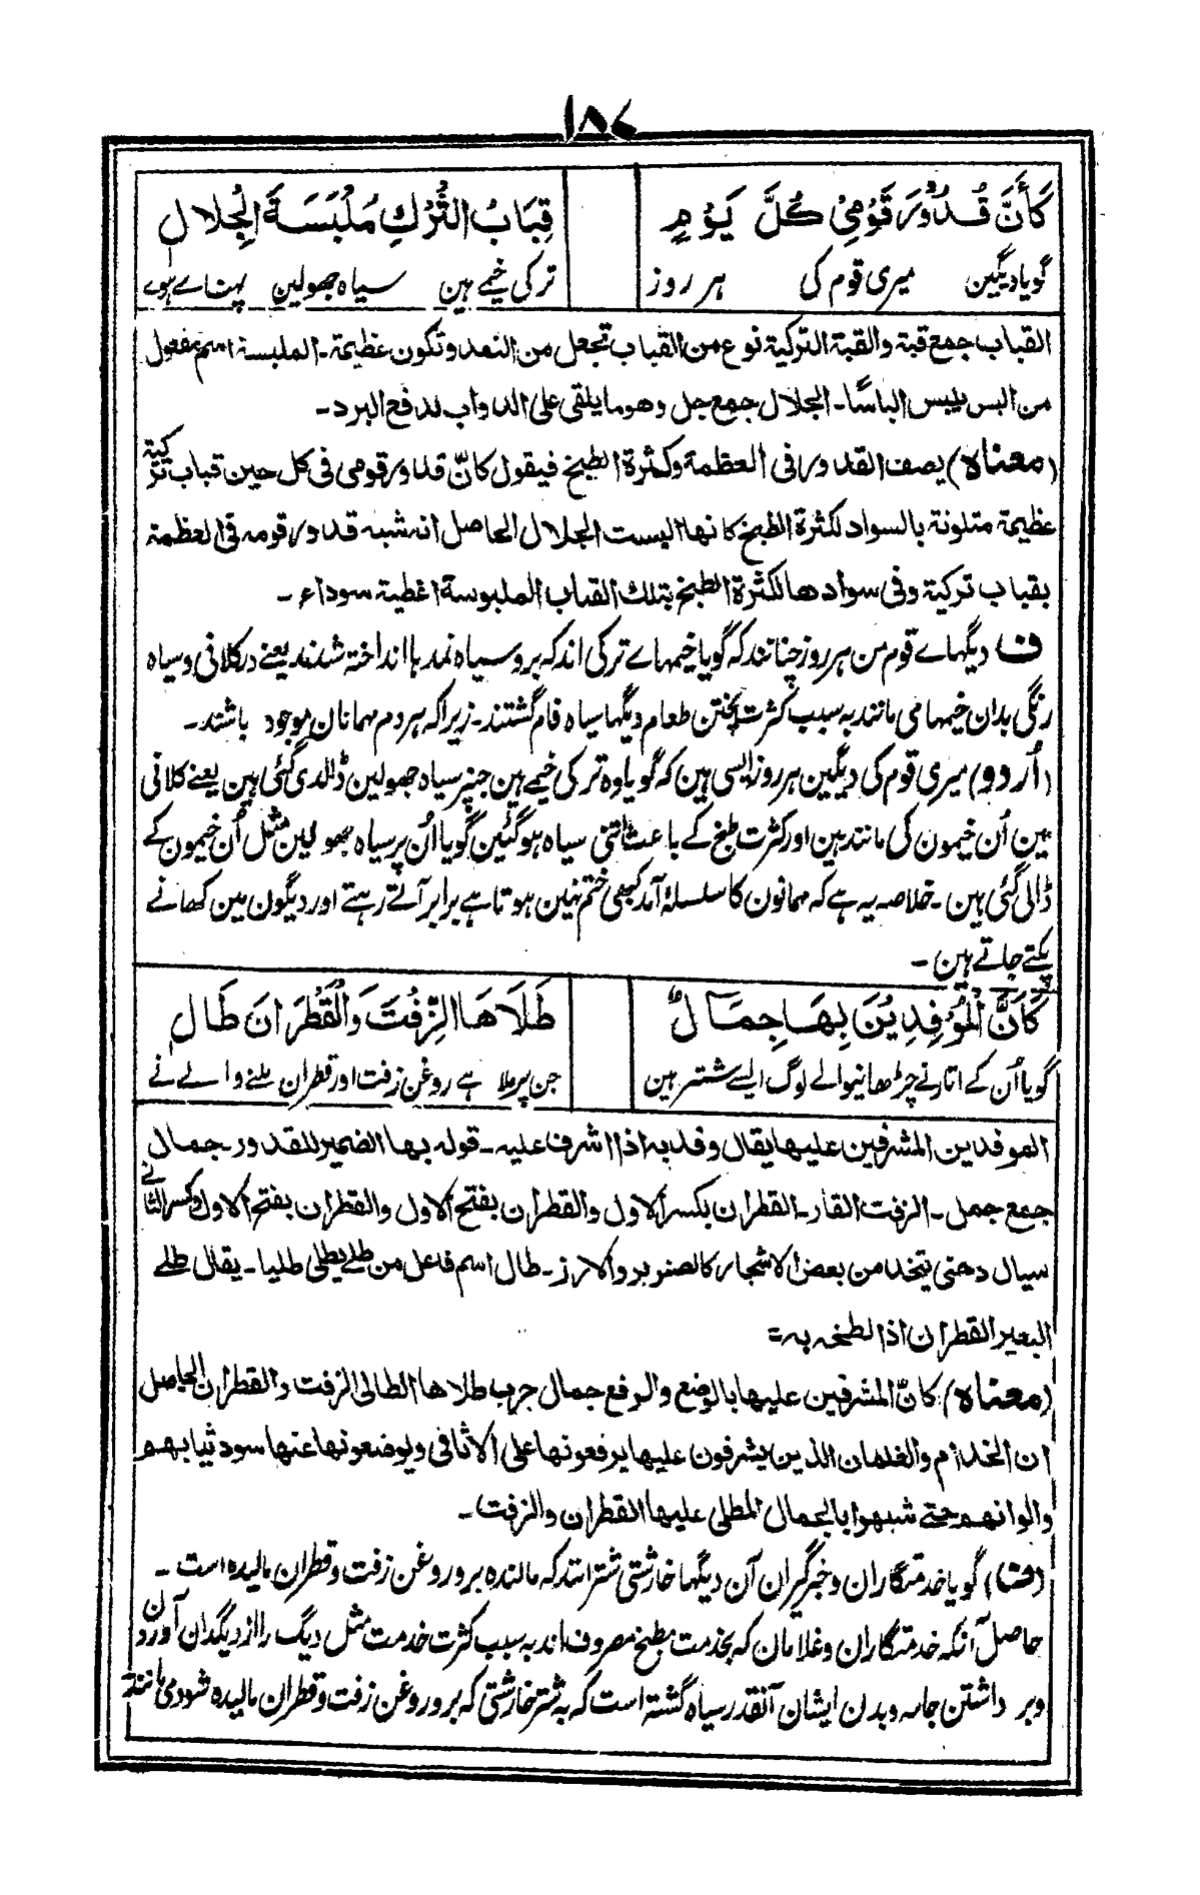 ۱۸۷
كَأَنَّ قُدُوْرَ قَوْمِيْ كُلَّ يَوْمٍ قِبَابُ التُّرْكِ مُلْبَسَةَ الْجِلَالِ
گویا دیگین میری قوم کی ہر روز ترکی خیمے ہین سیاہ جھولین پہناے ہوے
القباب جمع قبة والقبة التركية نوع من القباب تجعل من النمد وتكون عظيمة۔ الملبسة اسم مفعول
من البس يلبس الباسًا۔ الجلال جمع جل وهو ما يلقى على الدواب لدفع البرد۔
(معناه) يصف القدور فى العظمة وكثرة الطبخ فيقول كانّ قدور قومى فى كل حين قباب تركية
عظيمة متلونة بالسواد لكثرة الطبخ كانها البست الجلال الحاصل انه شبه قدور قومه فى العظمة
بقباب تركية وفى سوادها لكثرة الطبخ بتلك القباب الملبوسة اغطية سوداء۔
ف دیگہاے قوم من ہر روز چنانند کہ گویا خیمہاے ترکی اند کہ برو سیاہ نمدہا انداختہ شدند یعنے در کلانی و سیاہ
رنگی بدان خیمہا می مانند بہ سبب کثرت پختن طعام دیگہا سیاہ فام گشتند۔ زیرا کہ ہر دم مہمانان موجود باشند۔
(اُردو) میری قوم کی دیگین ہر روز ایسی ہین کہ گویا وہ ترکی خیمے ہین جنپر سیاہ جھولین ڈالدی گئی ہین یعنے کلانی
مین اُن خیمون کی مانند ہین اور کثرت طبخ کے باعث اتنی سیاہ ہو گئین گویا اُن پر سیاہ جھولین مثل اُن خیمون کے
ڈالی گئی ہین۔ خلاصہ یہ ہے کہ مہمانون کا سلسلۂ آمد کبھی ختم نہین ہوتا ہے برابر آتے رہتے اور دیگون مین کھانے
پکتے جاتے ہین۔
كَاَنَّ الْمُوْفِدِيْنَ بِهَا جِمَالٌ طَلَاهَا الزِّفْتَ وَالْقُطْرَانَ طَالِ
گویا اُن کے اتارنے چڑھانیوالے لوگ ایسے شتر ہین جن پر ملا ہے روغن زفت اور قطران ملنے والے نے
الموفدين المشرفين عليها يقال وفد به اذا اشرف عليه۔ قوله بها الضمير للقدور۔ جمال
جمع جمل۔ الزفت القار۔ القطران بكسر الاول والقطران بفتح الاول والقطران بفتح الاول وكسر الثانے
سيال دهنى يتخذ من بعض الاشجار كالصنوبر والارز۔ طال اسم فاعل من طلے يطلى طليا۔ يقال طلے
البعير القطران اذا لطخه به =
(معناه) كانّ المشرفين عليها بالوضع والرفع جمال جرب طلاها الطالى الزفت والقطران الحاصل
ان الخدام والغلمان الذين يشرفون عليها يرفعونها على الاثافى ويوضعونها عنها سود ثيابهم
والوانهم حتے شبهوا بالجمال المطلى عليها القطران والزفت۔
(ف) گویا خدمتگاران و خبرگیران آن دیگہا خارشتی شترانند کہ مالندہ برو روغن زفت و قطران مالیدہ است۔
حاصل آنکہ خدمتگاران و غلامان کہ بخدمت مطبخ مصروف اند بہ سبب کثرت خدمت مثل دیگ را از دیگدان آوردن
و بر داشتن جامہ و بدن ایشان آنقدر سیاہ گشتہ است کہ بہ شتر خارشتی کہ برو روغن زفت و قطران مالیدہ شود می مانند